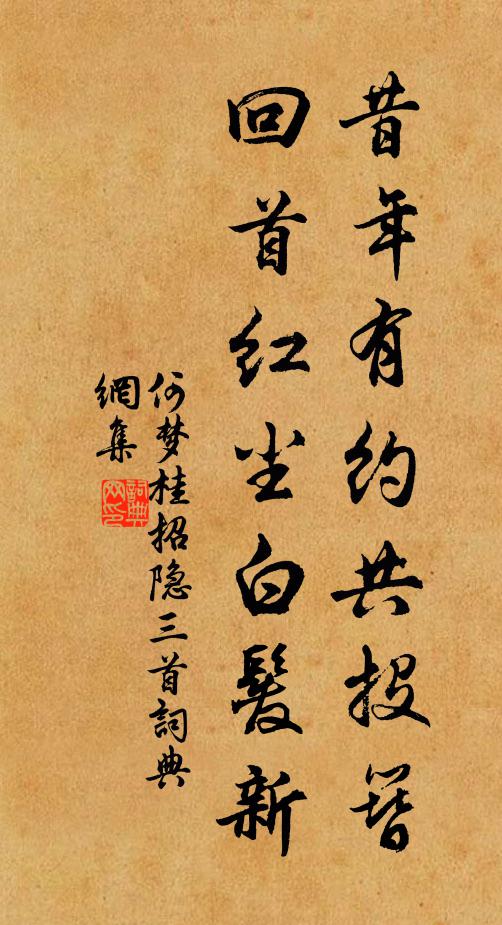 昔年有约共投簪
回首红尘白髮新
何梦桂招隐三首詞典
網集
詞典網印